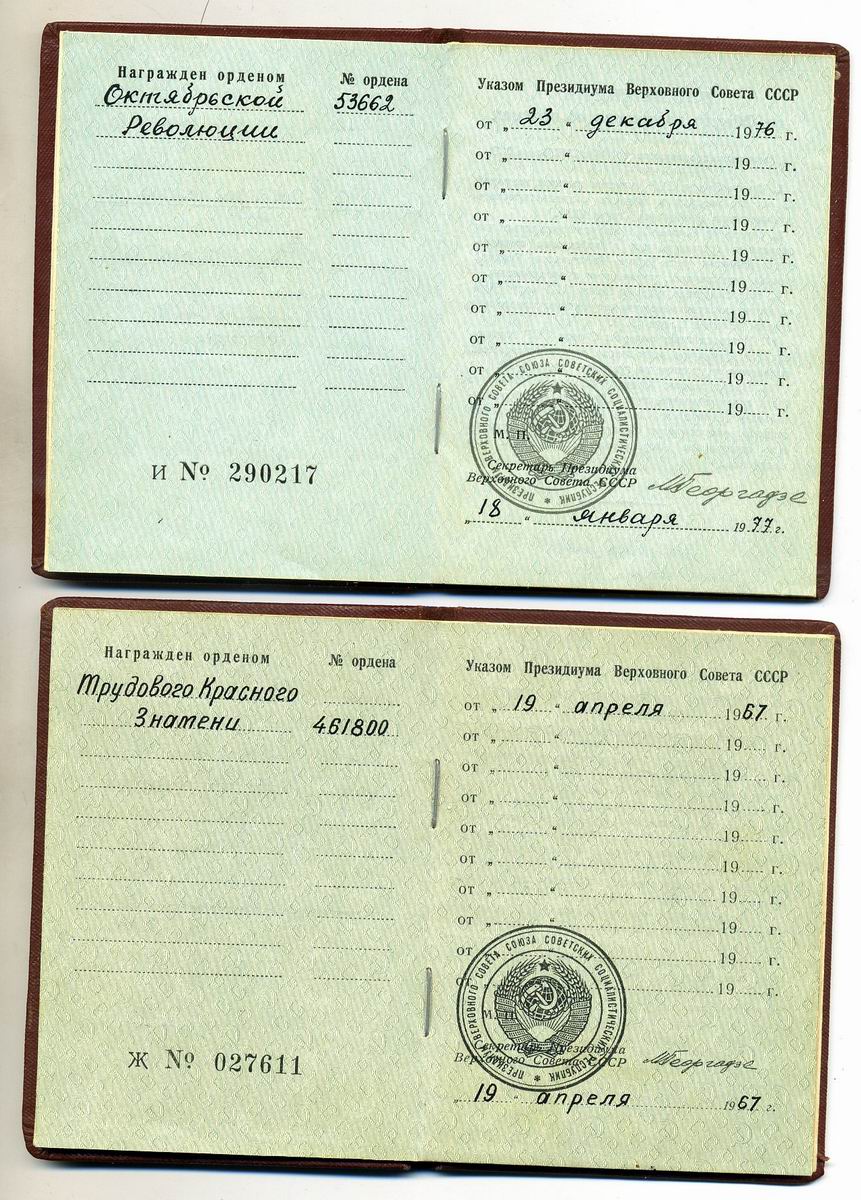 Награжден орденом
№ ордена
Октябрьской
53662
Революции
И № 290217
Указом Президиума Верховного Совета СССР
от „ 23 “ декабря 1976 г.
от „ “ 19 г.
от „ “ 19 г.
от „ “ 19 г.
от „ “ 19 г.
от „ “ 19 г.
от „ “ 19 г.
от „ “ 19 г.
от „ “ 19 г.
от „ “ 19 г.
ПРЕЗИДИУМ ВЕРХОВНОГО СОВЕТА СОЮЗА СОВЕТСКИХ СОЦИАЛИСТИЧЕСКИХ РЕСПУБЛИК *
М. П.
Секретарь Президиума
Верховного Совета СССР
МГеоргадзе
„ 18 “ января 1977 г.
Награжден орденом
№ ордена
Трудового Красного
Знамени
461800
Ж № 027611
Указом Президиума Верховного Совета СССР
от „ 19 “ апреля 1967 г.
от „ “ 19 г.
от „ “ 19 г.
от „ “ 19 г.
от „ “ 19 г.
от „ “ 19 г.
от „ “ 19 г.
от „ “ 19 г.
от „ “ 19 г.
от „ “ 19 г.
ПРЕЗИДИУМ ВЕРХОВНОГО СОВЕТА СОЮЗА СОВЕТСКИХ СОЦИАЛИСТИЧЕСКИХ РЕСПУБЛИК *
М. П.
Секретарь Президиума
Верховного Совета СССР
МГеоргадзе
„ 19 “ апреля 1967 г.